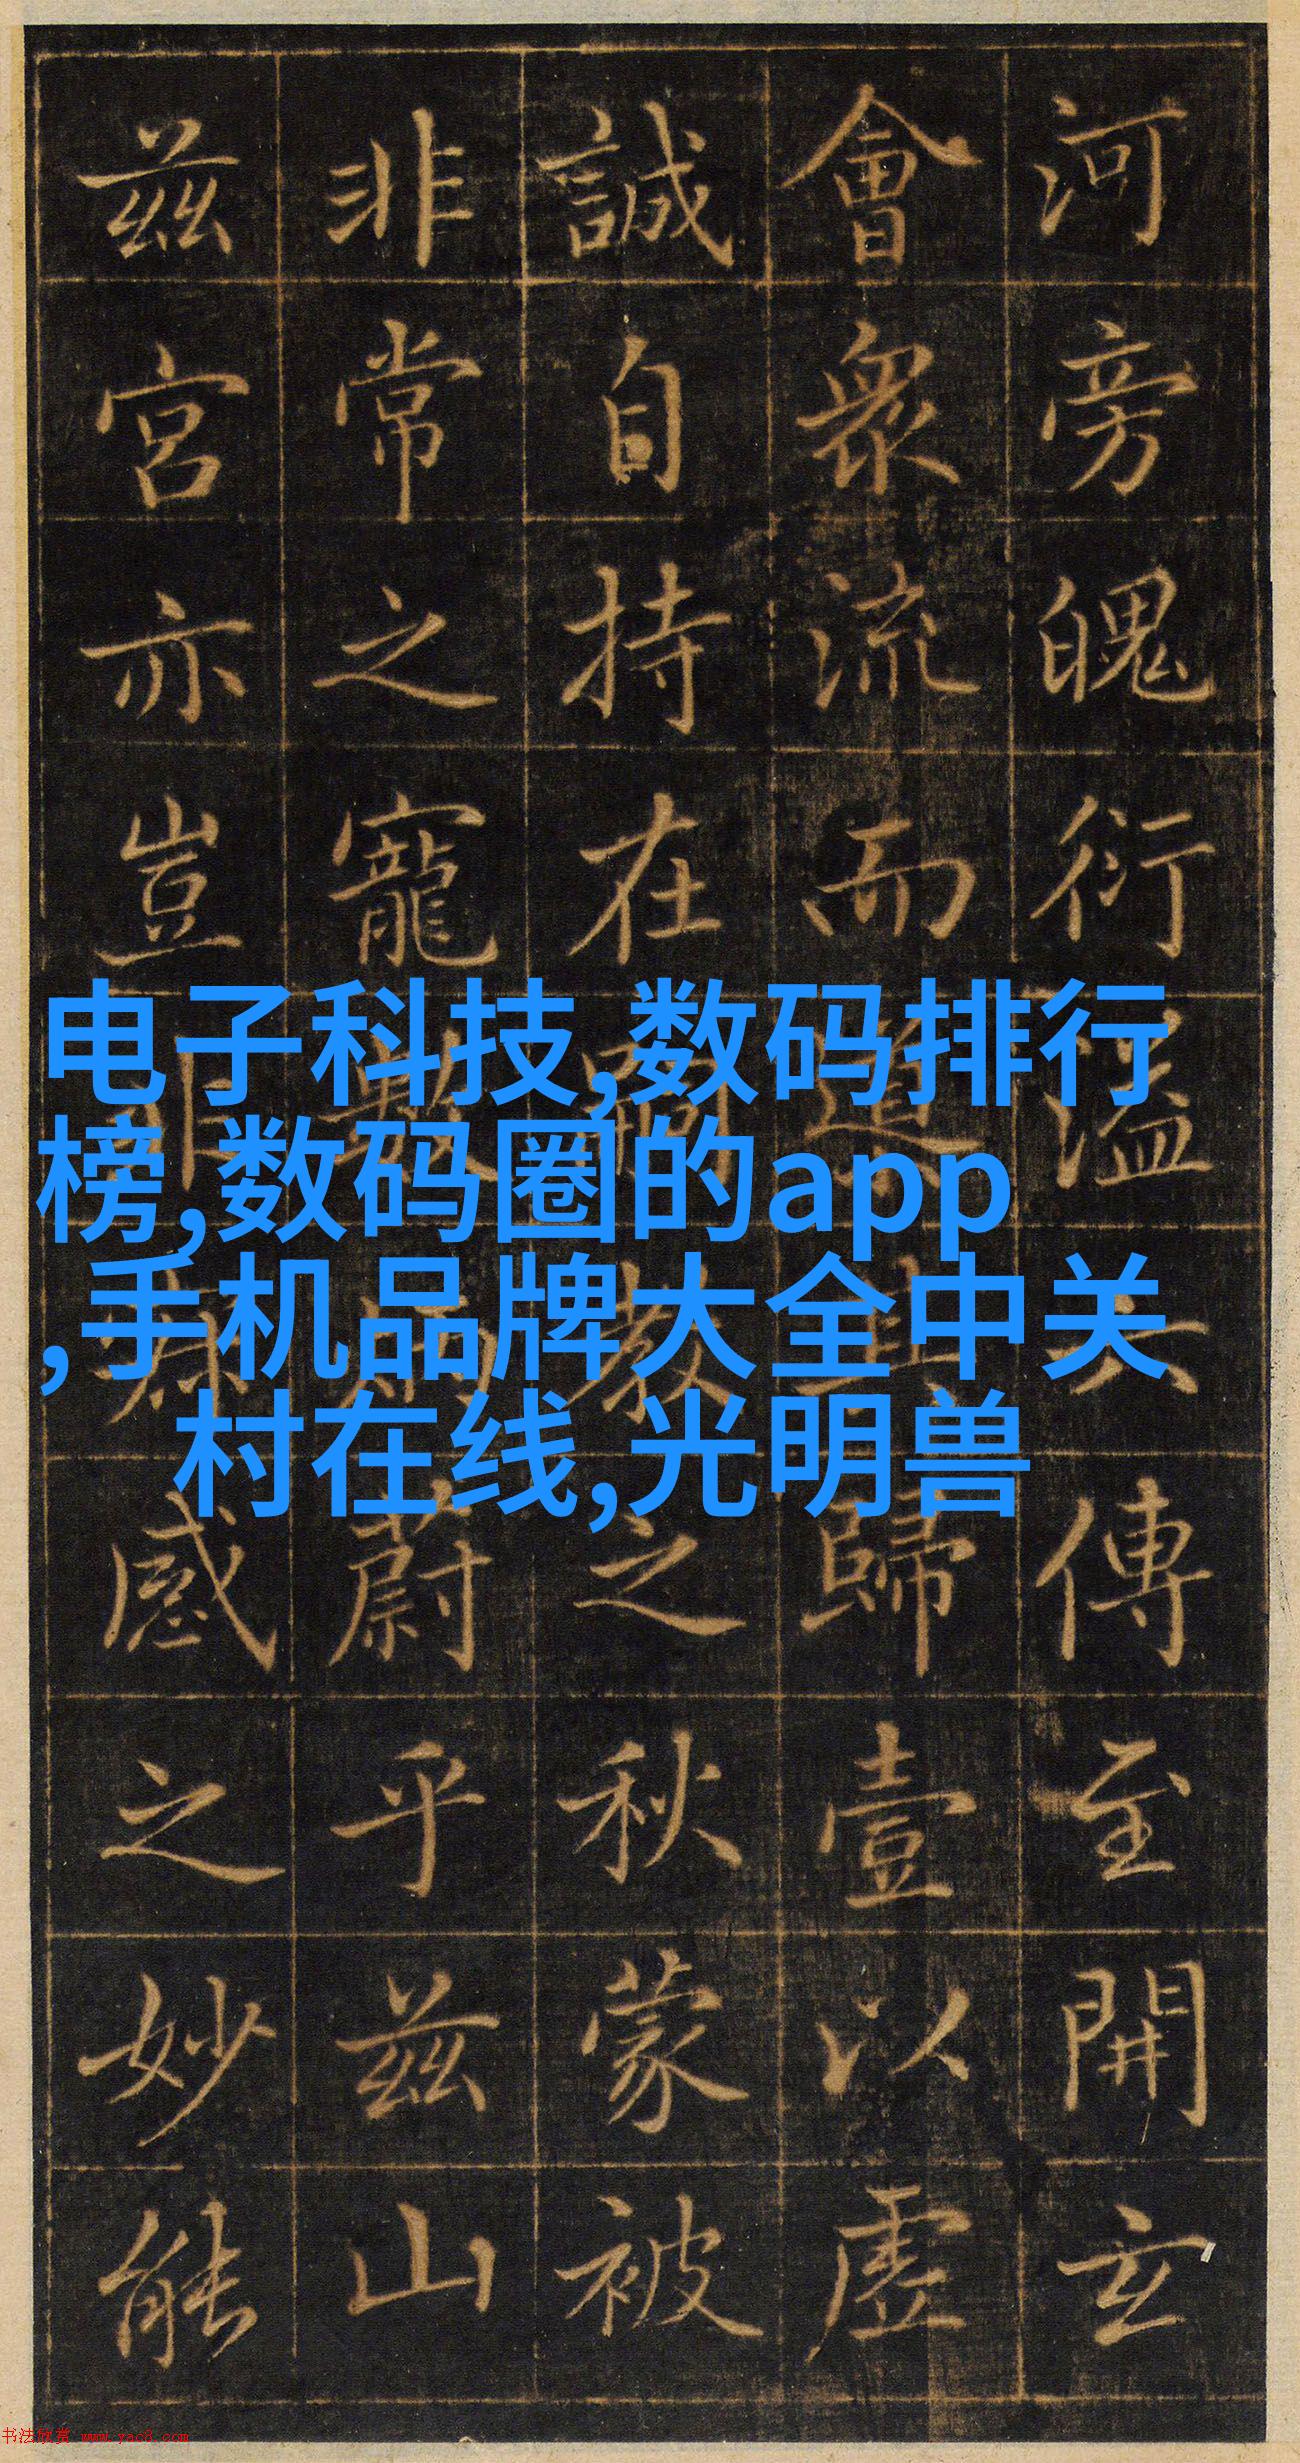 河旁魄衍溢傳至開玄
會衆流而歸壹以虛
誠自持在教之秋蒙被
非常之寵蔚乎茲山
茲宮亦豈非感之妙能
电子科技,数码排行
榜,数码圈的app
,手机品牌大全中关
村在线,光明兽
书法欣赏 www.yac8.com